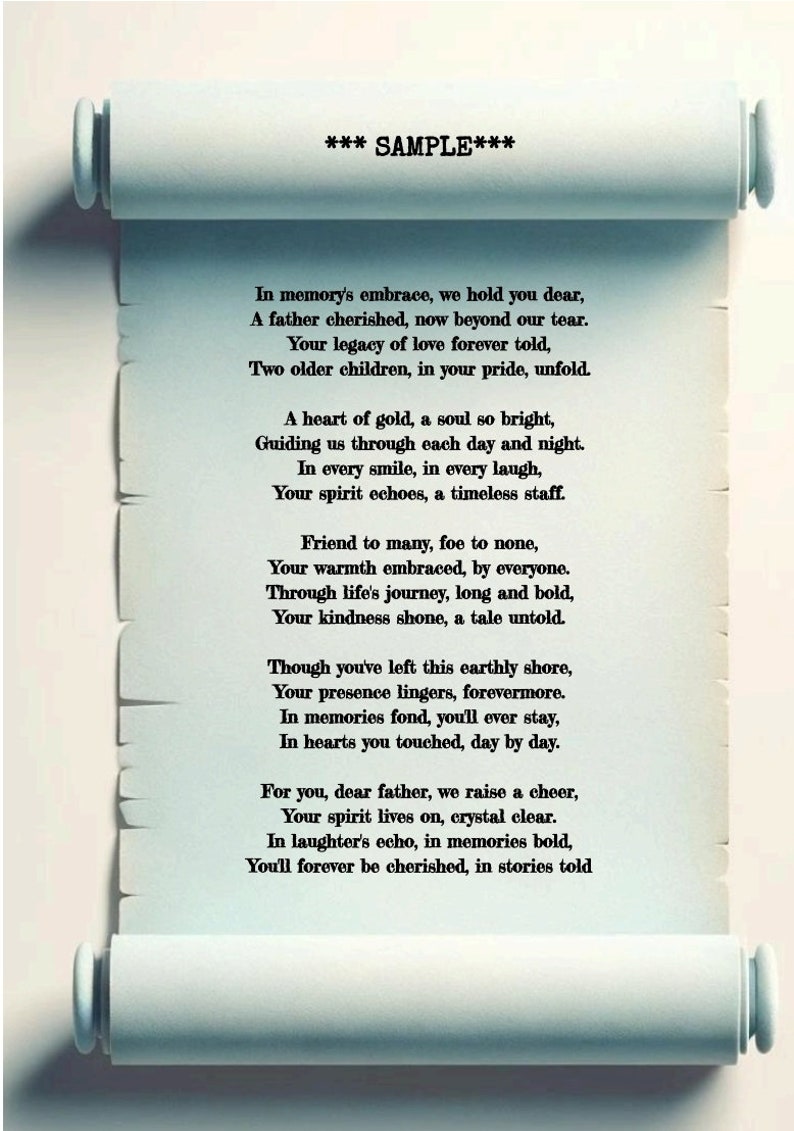 *** SAMPLE***
In memory's embrace, we hold you dear,
A father cherished, now beyond our tear.
Your legacy of love forever told,
Two older children, in your pride, unfold.
A heart of gold, a soul so bright,
Guiding us through each day and night.
In every smile, in every laugh,
Your spirit echoes, a timeless staff.
Friend to many, foe to none,
Your warmth embraced, by everyone.
Through life's journey, long and bold,
Your kindness shone, a tale untold.
Though you've left this earthly shore,
Your presence lingers, forevermore.
In memories fond, you'll ever stay,
In hearts you touched, day by day.
For you, dear father, we raise a cheer,
Your spirit lives on, crystal clear.
In laughter's echo, in memories bold,
You'll forever be cherished, in stories told